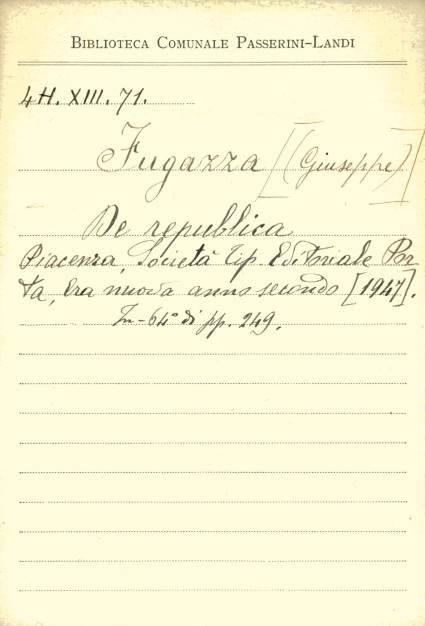 BIBLIOTECA COMUNALE PASSERINI-LANDI
4H. XIII. 71.
Fugazza [(Giuseppe)]
De republica
Piacenza, Società Tip. Editoriale Por
ta, Era nuova anno secondo [1947].
In-64° di pp. 249.